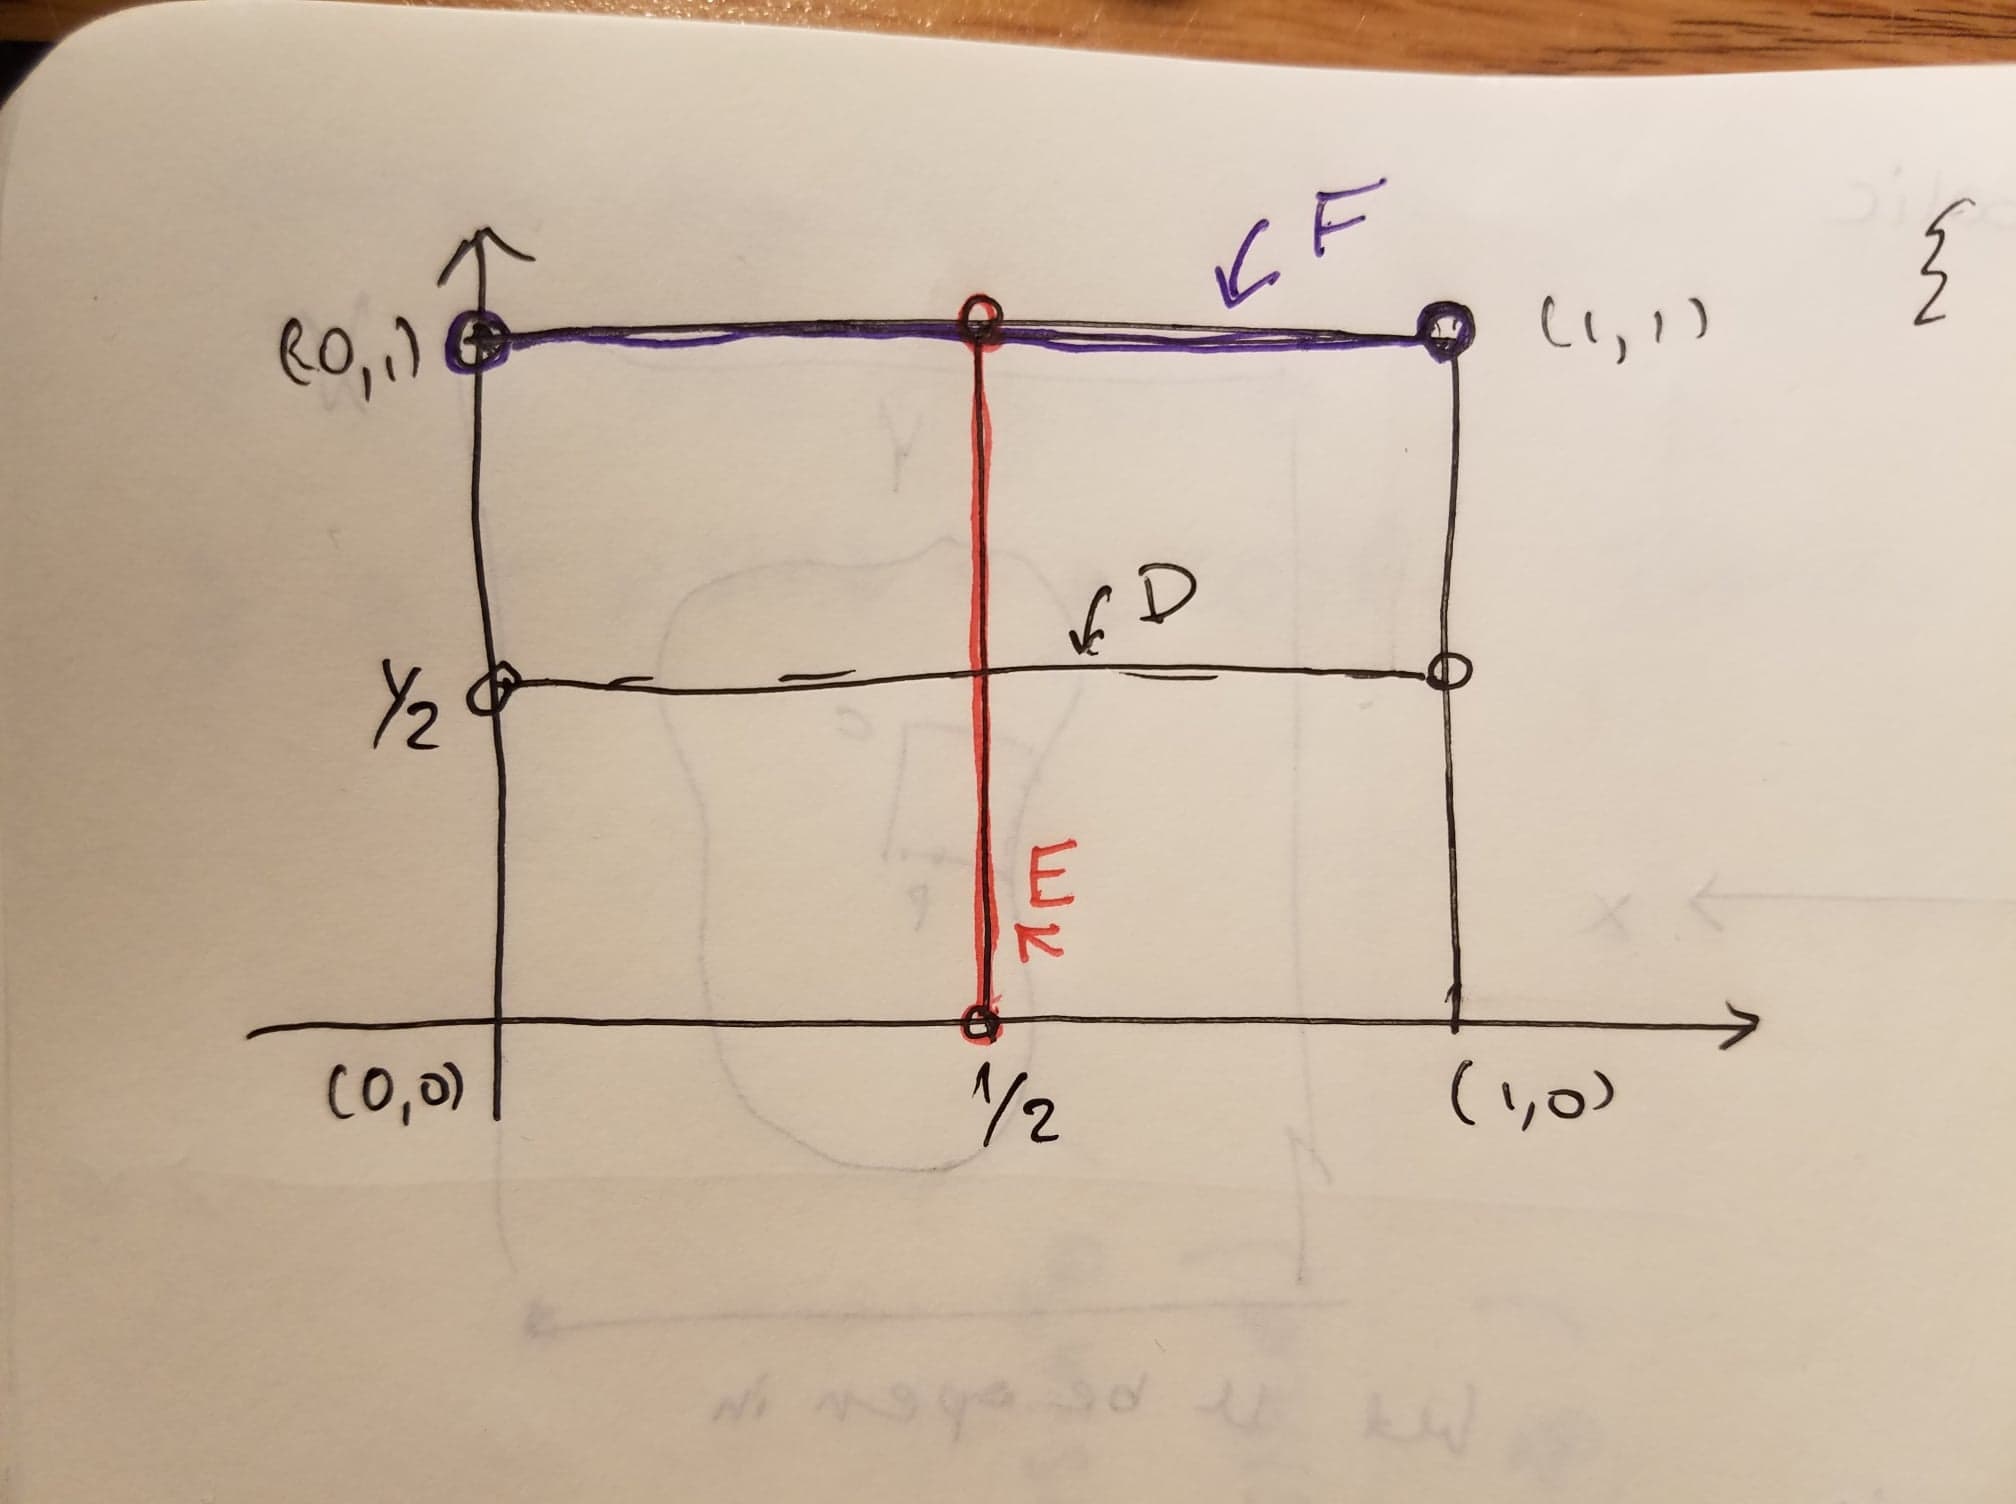 F
{
(0,1)
(1,1)
D
1/2
E
(0,0)
1/2
(1,0)